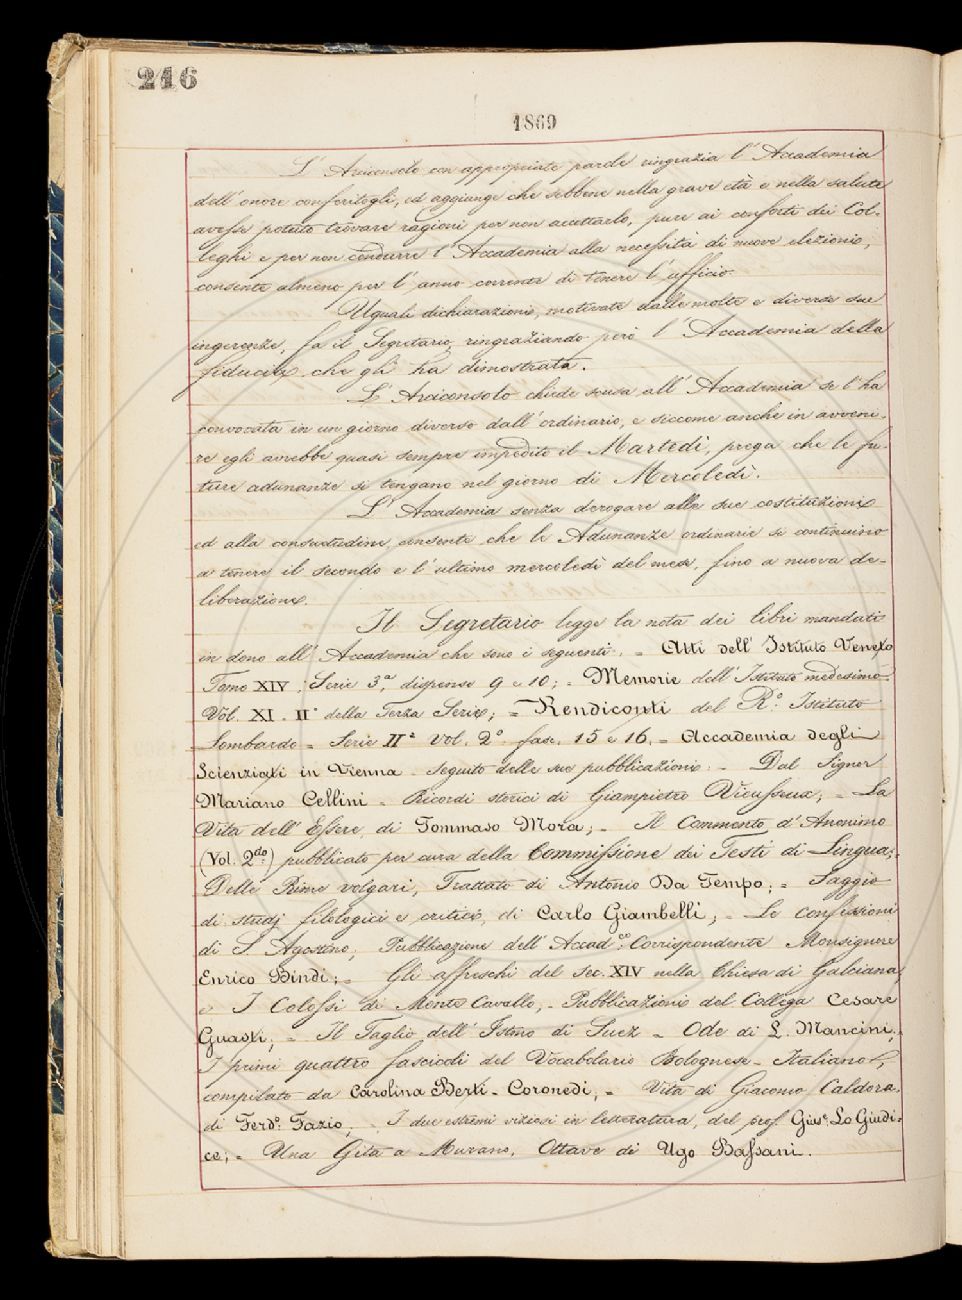 246
1869
L'Arciconsolo con appropriate parole ringrazia l'Accademia
dell'onore conferitogli, ed aggiunge che sebbene nella grave età e nella salute
avesse potuto trovare ragioni per non accettarlo, pure ai conforti dei Col-
leghi e per non condurre l'Accademia alla necessità di nuove elezioni,
consente almeno per l'anno corrente di tenere l'ufficio.
Uguali dichiarazioni, motivate dalle molte e diverse sue
ingerenze, fa il Segretario, ringraziando però l'Accademia della
fiducia che gli ha dimostrata.
L'Arciconsolo chiede scusa all'Accademia se l'ha
convocata in un giorno diverso dall'ordinario, e siccome anche in avveni-
re egli avrebbe quasi sempre impedito il Martedì, prega che le fu-
ture adunanze si tengano nel giorno di Mercoledì.
L'Accademia senza derogare alle sue costituzioni
ed alla consuetudine, consente che le Adunanze ordinarie si continuino
a tenere il secondo e l'ultimo mercoledì del mese, fino a nuova de-
liberazione.
Il Segretario legge la nota dei libri mandati
in dono all'Accademia che sono i seguenti. = Atti dell'Istituto Veneto
Tomo XIV, Serie 3ª, dispense 9 e 10; = Memorie dell'Istituto medesimo
Vol. XI - IIª della Terza Serie; = Rendiconti del R.º Istituto
Lombardo = Serie IIª Vol. 2º fasc. 15 e 16. = Accademia degli
Scienziati in Vienna - seguito delle sue pubblicazioni. - Dal Signor
Mariano Cellini = Ricordi storici di Giampietro Vieusseux; = La
Vita dell'Essere, di Tommaso Mora; = Il Commento d'Anonimo
(Vol. 2do) pubblicato per cura della Commissione dei Testi di Lingua; =
Delle Rime volgari, Trattato di Antonio Da Tempo; = Saggio
di studj filologici e critici, di Carlo Giambelli; = Le confessioni
di S. Agostino, Pubblicazione dell'Accad.co Corrispondente Monsignore
Enrico Bindi; = Gli affreschi del sec. XIV nella Chiesa di Galciana,
e I Colossi di Monte Cavallo, - Pubblicazioni del Collega Cesare
Guasti; = Il Taglio dell'Istmo di Suez = Ode di L. Mancini;
I primi quattro fascicoli del Vocabolario Bolognese - Italiano,
compilato da Carolina Berti - Coronedi; = Vita di Giacomo Caldora,
di Ferd.º Fazio; I due estremi viziosi in letteratura, del prof. Gius.e Lo Giudi-
ce; = Una Gita a Murano, Ottave di Ugo Bassani.